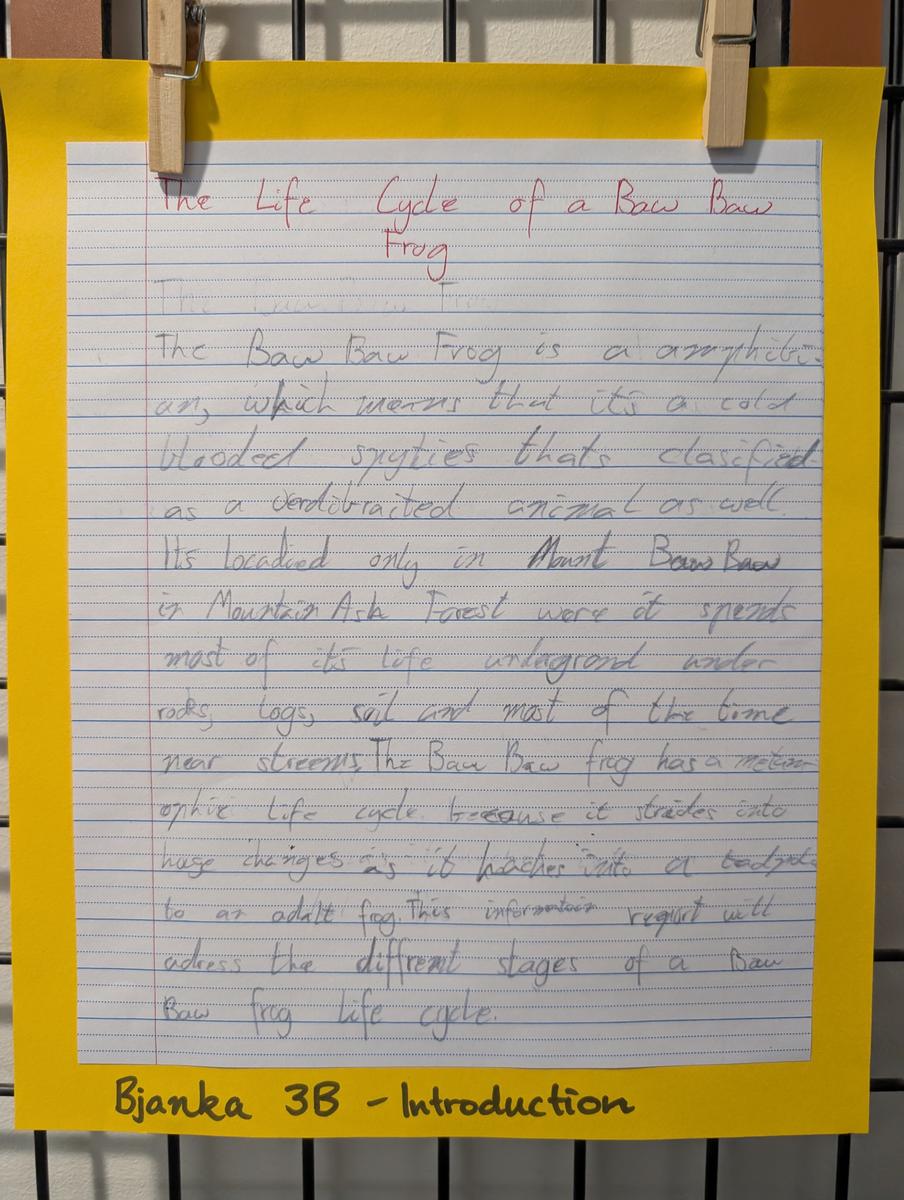 The Life Cycle of a Baw Baw
Frog
The Baw Baw Frog is a amphibi-
an, which means that it's a cold
blooded spyties thats clasified
as a verdibraited animal as well.
Its locadied only in Mount Baw Baw
in Mountain Ash Forest were it spends
most of it's life undegrond under
rocks, logs, soil and most of the time
near streems. The Baw Baw frog has a metam-
ophic life cycle because it strides into
huge changes as it haches into a tadpole
to an adalt frog. This informatoin report will
adress the diffrent stages of a Baw
Baw frog life cycle.
Bjanka 3B - Introduction